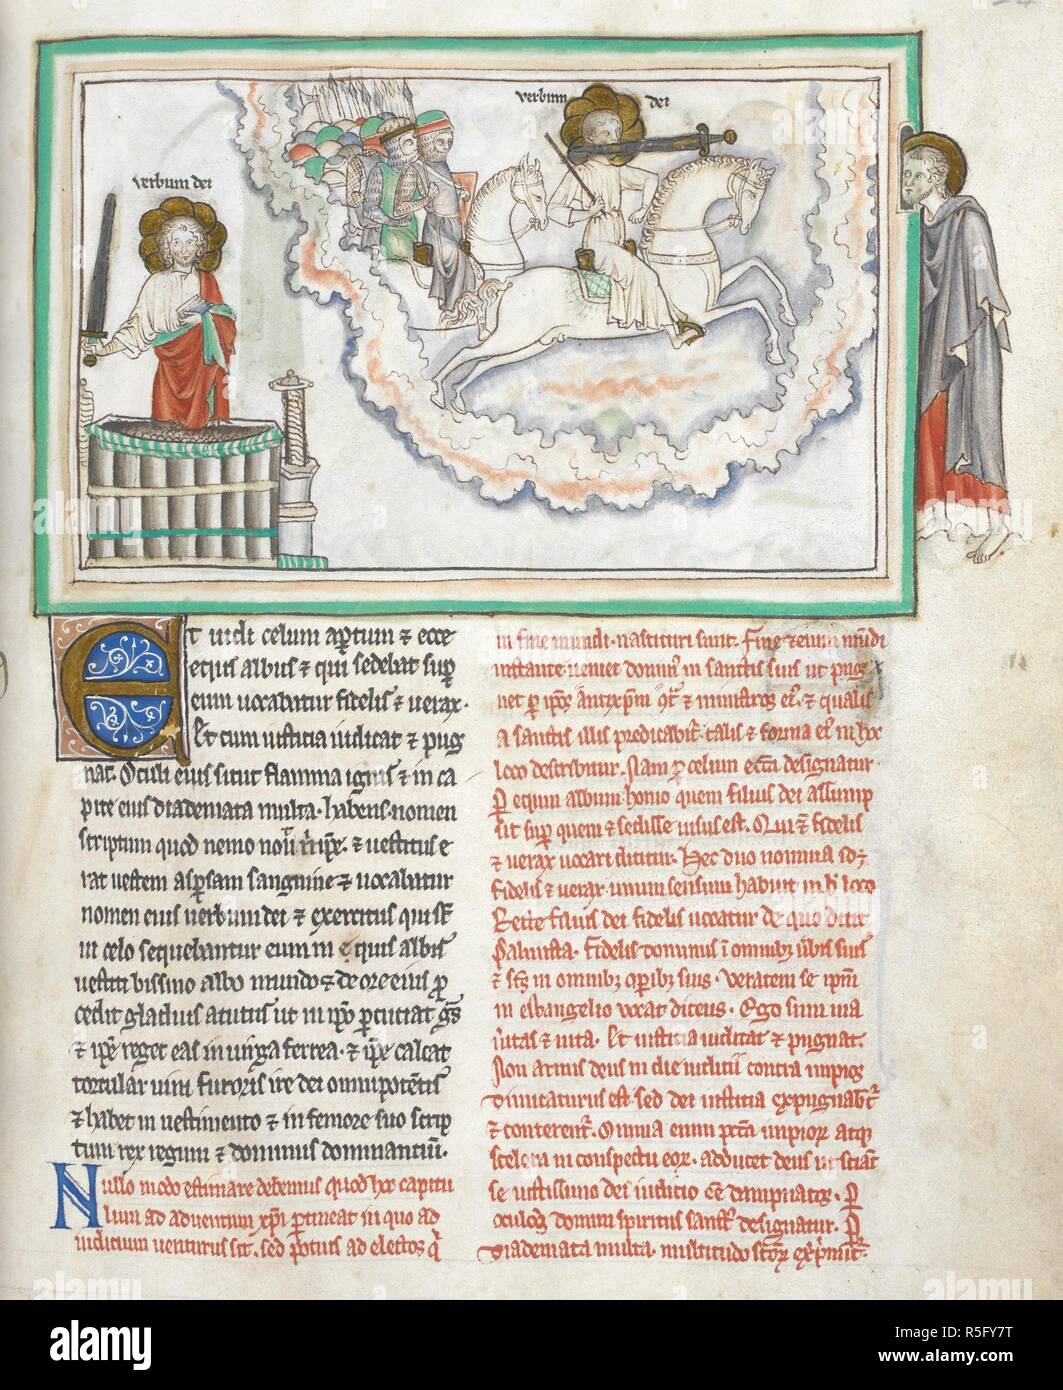 verbum dei
verbum dei
Et uidi celum aptum ⁊ ecce
equs albus ⁊ qui sedebat sup
eum uocabatur fidelis ⁊ uerax.
Et cum iusticia iudicat ⁊ pug
nat. Oculi eius sicut flamma ignis ⁊ in ca
pite eius diademata multa. habens nomen
scriptum quod nemo nouit nisi ipse. ⁊ uestitus e
rat uestem aspsam sanguine ⁊ uocabatur
nomen eius uerbum dei ⁊ exercitus qui st
in celo sequebantur eum in equis albis
uestiti bissino albo mundo ⁊ de ore eius p
cedit gladius acutus ut in ipo pcutiat gtes
⁊ ipe reget eas in uirga ferrea. ⁊ ipe calcat
torcular uini furoris ire dei omnipotetis
⁊ habet in uestimento ⁊ in femore suo scrip
tum rex regum ⁊ dominus dominantium.
Nullo modo estimare debemus quod hoc capitu
lum ad aduentum xpi ptineat in quo ad
iudicium uenturus sit. sed potius ad electos q
in fine mundi nascituri sunt. Fine etenim mundi
instante ueniet dominus in sanctis suis ut pug
net p ipos ⁊ ministros ei. ⁊ qualis
a sanctis illis predicabit. talis ⁊ forma ei in hoc
loco describitur. Nam p celum eccla designatur
P equum album homo quem filius dei assump
sit sup quem ⁊ sedisse uisus est. Qui ⁊ fidelis
⁊ uerax uocari dicitur. Hec duo nomina
fidelis ⁊ uerax unum sensum habent in h loco
Recte filius dei fidelis uocatur de quo dicit
Psalmista. Fidelis dominus in omnibus uerbis suis
⁊ scs in omnibus opibus suis. Veracem se ipm
in euangelio uocat dicens. Ego sum uia
ueritas ⁊ uita. Et iusticia iudicat ⁊ pugnat.
Non armis deus in die iudicii contra impios
dimicaturus est sed dei iusticia expugnabt
⁊ conterent. Omnia enim pcta impior atq
scelera in conspectu eor. adducet deus ut sciant
se iustissimo dei iudicio ee dampnatos. P
oculos domini spiritus sanct designatur. P
diademata multa. multitudo scor exprimit.
alamy
R5FY7T
www.alamy.com